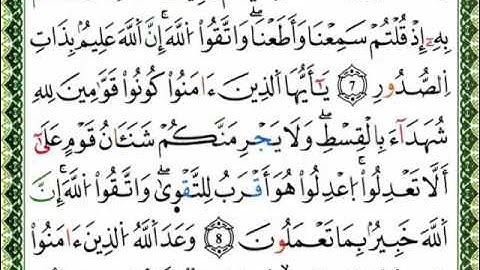 بِهِۦٓ إِذْ قُلْتُمْ سَمِعْنَا وَأَطَعْنَا ۖ وَاتَّقُوا۟ اللَّهَ ۚ إِنَّ اللَّهَ عَلِيمٌۢ بِذَاتِ
اِ۬لصُّدُورِ 7 يَٰٓأَيُّهَا اَ۬لَّذِينَ ءَامَنُوا۟ كُونُوا۟ قَوَّٰمِينَ لِلهِ
شُهَدَآءَ بِالْقِسْطِ ۖ وَلَا يَجْرِمَنَّكُمْ شَنَـَٔانُ قَوْمٍ عَلَىٰٓ
أَلَّا تَعْدِلُوا۟ ۚ اَ۪عْدِلُوا۟ هُوَ أَقْرَبُ لِلتَّقْوَىٰ ۖ وَاتَّقُوا۟ اللَّهَ ۚ إِنَّ
اَ۬للَّهَ خَبِيرٌۢ بِمَا تَعْمَلُونَ 8 وَعَدَ اَ۬للَّهُ اُ۬لَّذِينَ ءَامَنُوا۟